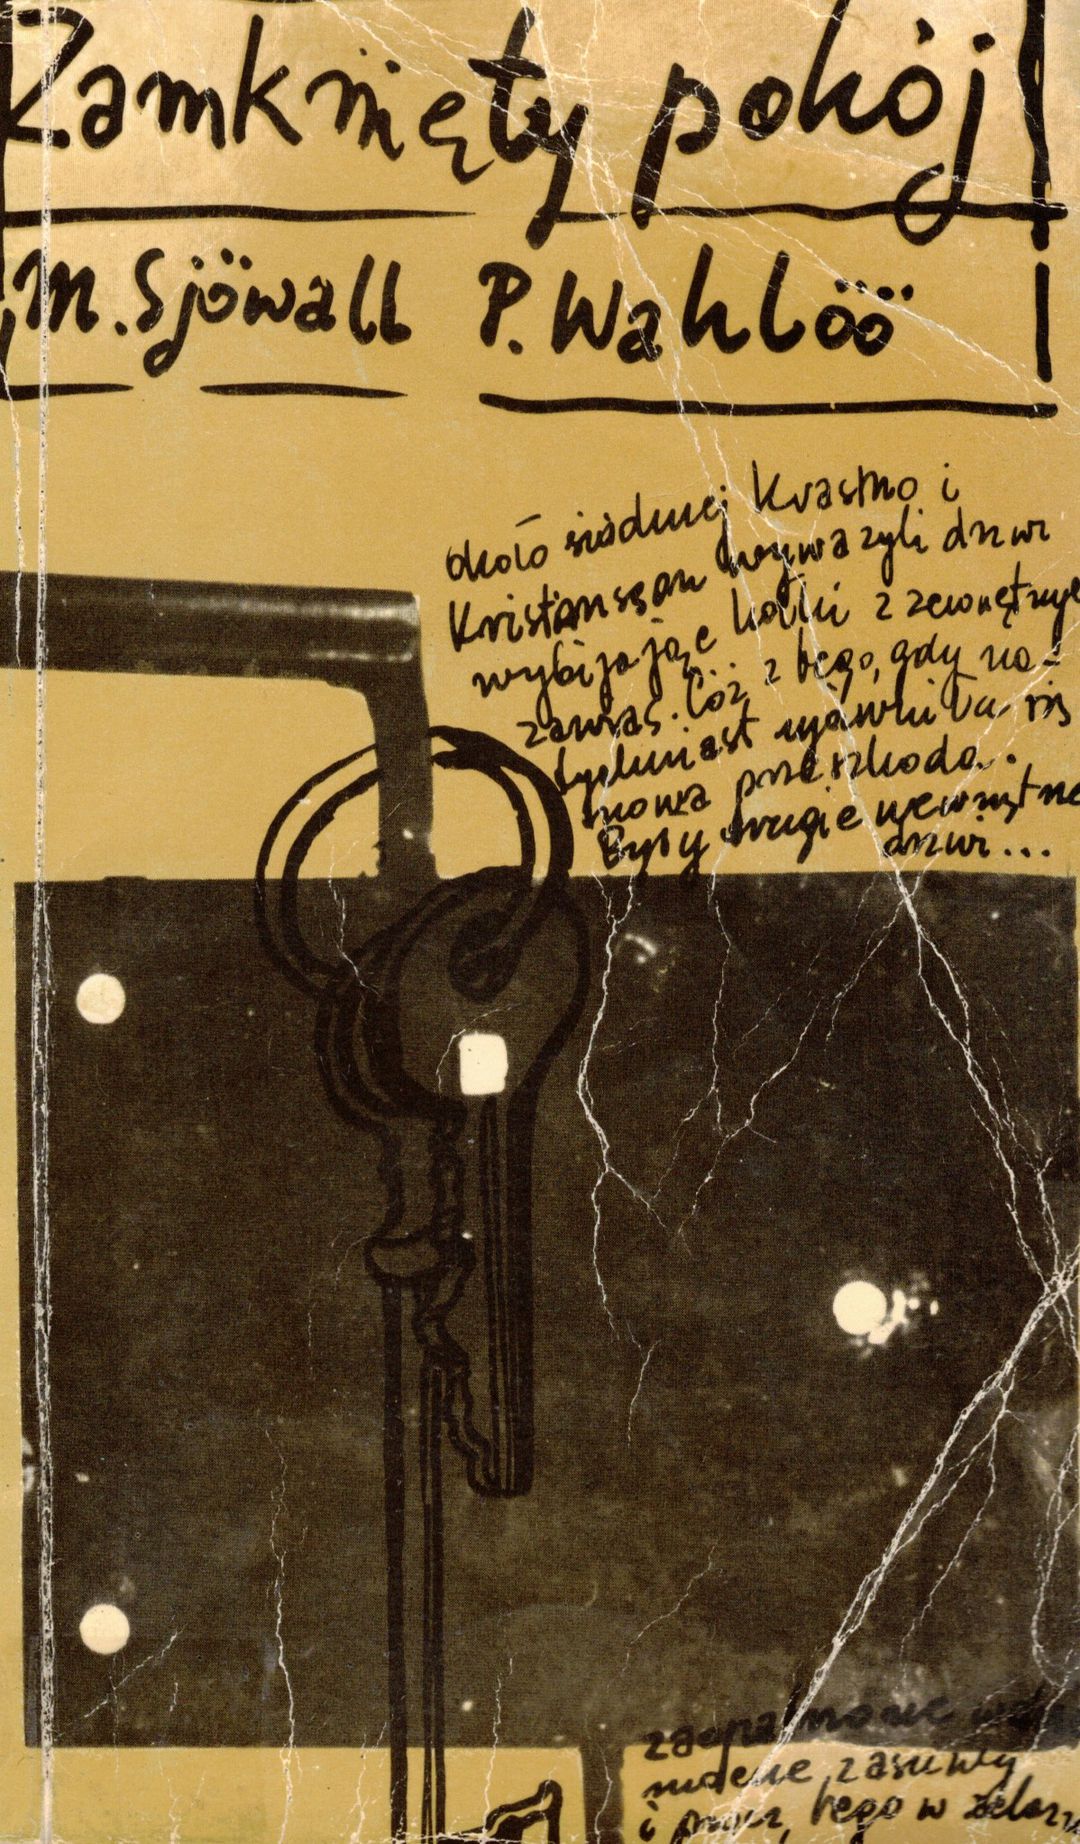 Zamknięty pokój
M. Sjöwall P. Wahlöö
około siódmej Kvastmo i
Kristiansson wyważyli drzwi
wybijając kołki z zewnętrznych
zawias. Cóż z tego, gdy na-
tychmiast ujawniła się
nowa przeszkoda.
Były drugie wewnętrzne
drzwi...
zaopatrzone w
zasuwy
i prócz tego w